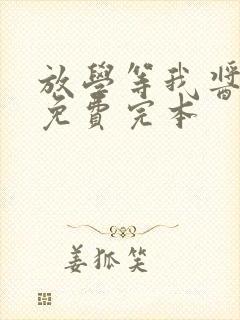 放學等我醬
免費完本
姜狐笑